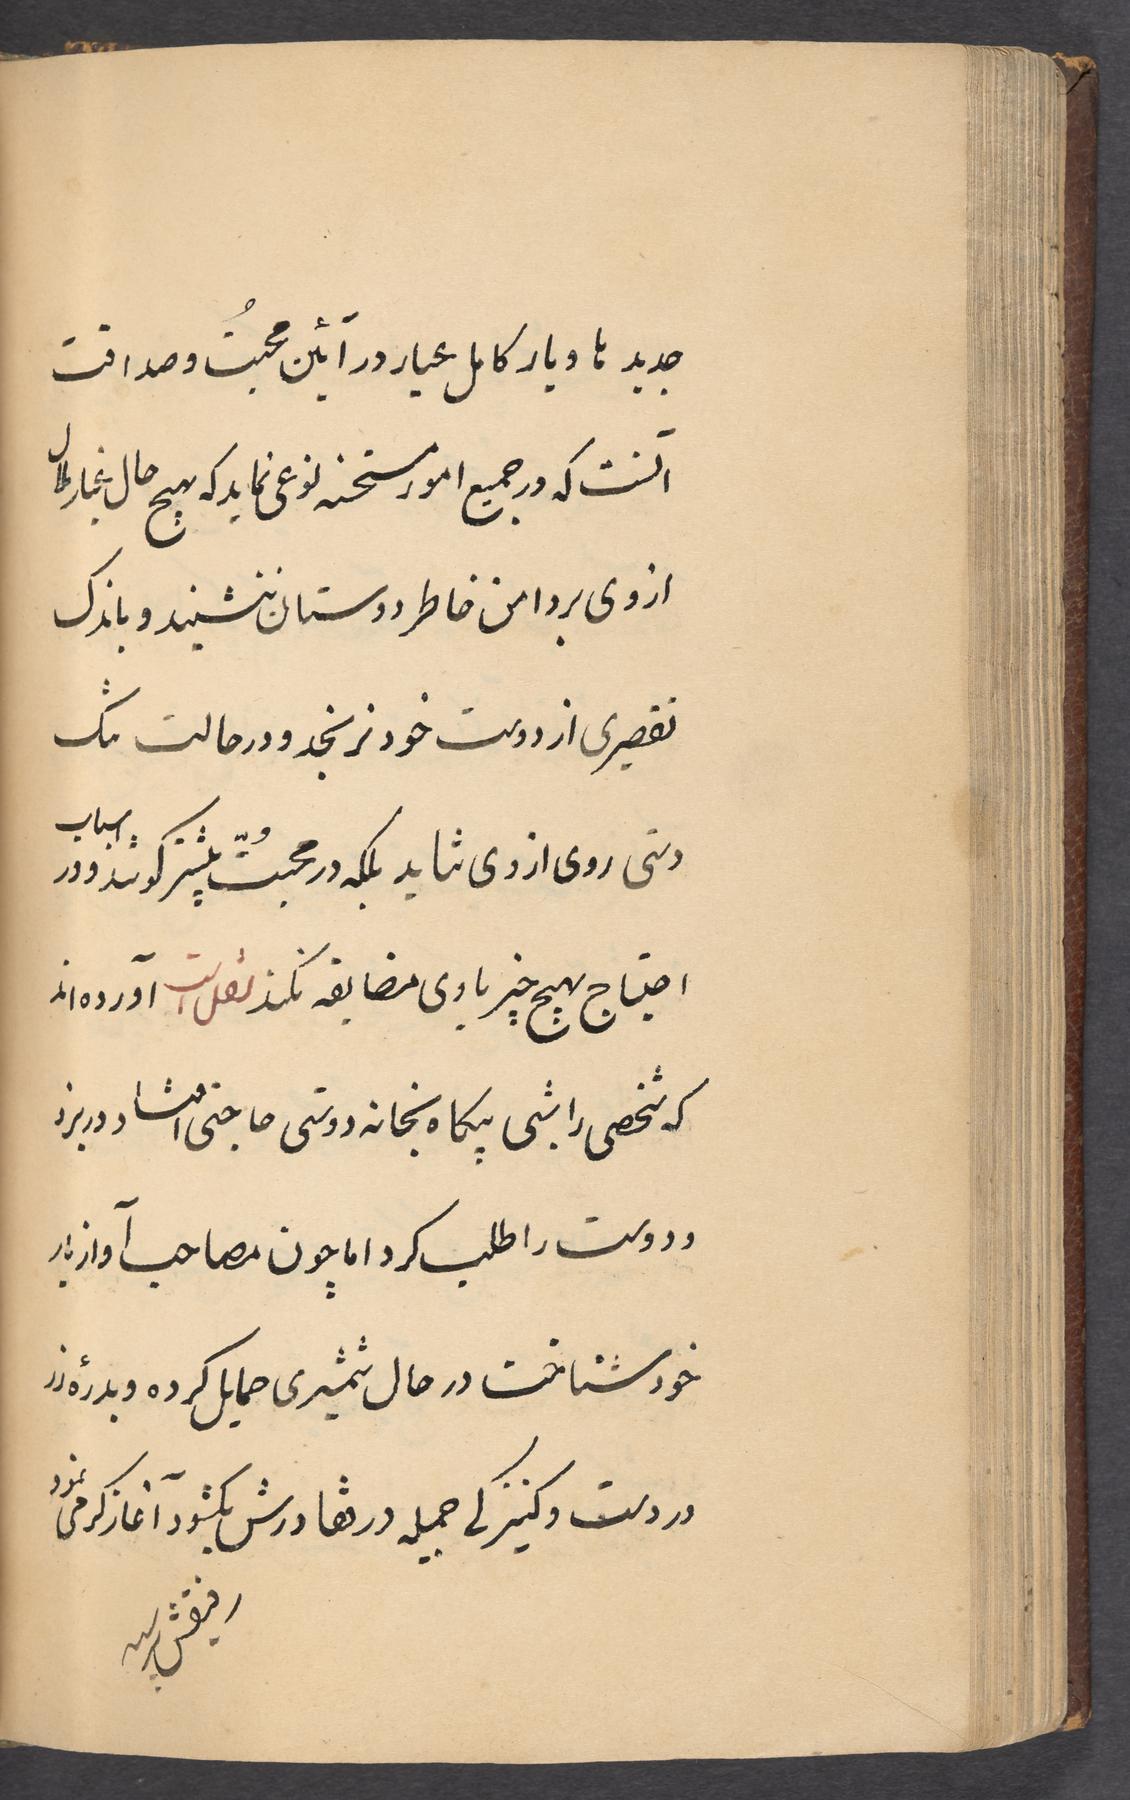 جدید ما و یار کامل عیار در آئین محبت و صداقت
آنست که در جمیع امور مستحسنه نوعی نماید که بهیچ حال غبار ملال
از وی بر دامن خاطر دوستان ننشیند و باندک
تقصیری از دوست خود نرنجد و در حالت تنگ
دستی روی از وی نتابد بلکه در محبت بیشتر کوشد و در اسباب
احتیاج بهیچ چیز با وی مضایقه نکند نقل است آورده اند
که شخصی را شبی بیکاه بخانه دوستی حاجتی افتاد در بزد
و دوست را طلب کرد اما چون مصاحب آواز یار
خود شناخت در حال شمشیری حمایل کرده و بدرهٔ زر
در دست و کنیزکی جمیله در قفا درش بکشود آغاز کرمی نمود
رفیقش پرسید